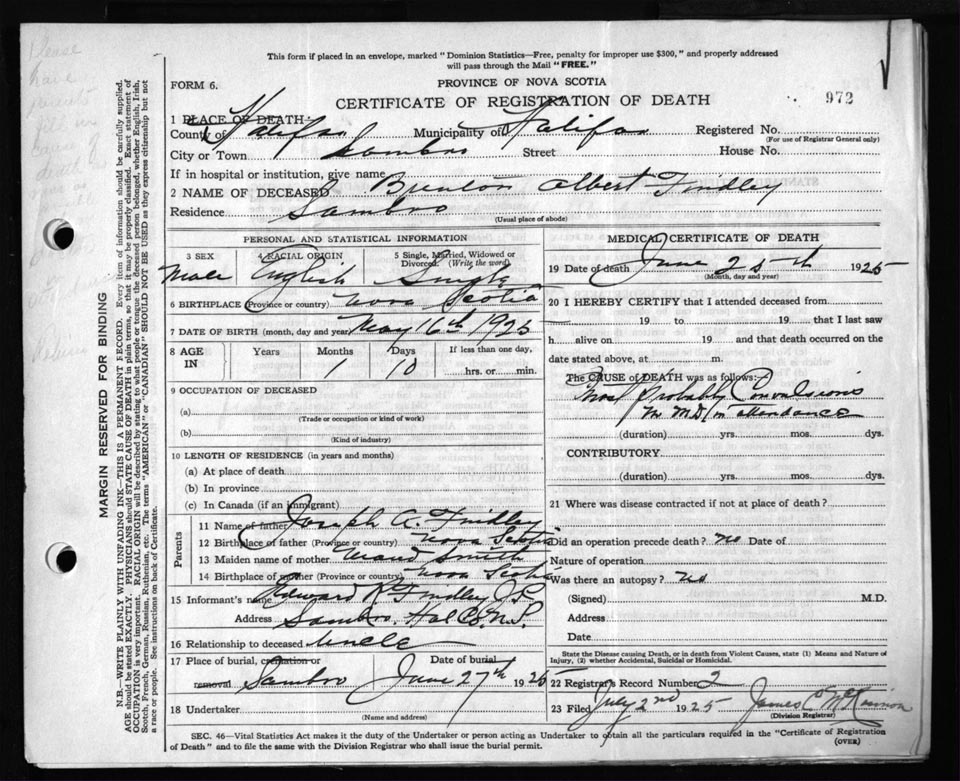 This form if placed in an envelope, marked "Dominion Statistics—Free, penalty for improper use $300," and properly addressed
will pass through the Mail "FREE."
FORM 6.
PROVINCE OF NOVA SCOTIA
CERTIFICATE OF REGISTRATION OF DEATH
972
1 PLACE OF DEATH—
County of Halifax Municipality of Halifax Registered No.
(For use of Registrar General only)
City or Town Sambro Street House No.
If in hospital or institution, give name
2 NAME OF DECEASED Brenton Albert Findley
Residence Sambro
(Usual place of abode)
PERSONAL AND STATISTICAL INFORMATION
3 SEX 4 RACIAL ORIGIN 5 Single, Married, Widowed or
Divorced. (Write the word)
Male English Single
6 BIRTHPLACE (Province or country) Nova Scotia
7 DATE OF BIRTH (month, day and year) May 16th 1925
8 AGE IN Years Months Days If less than one day,
1 10 hrs. or min.
9 OCCUPATION OF DECEASED
(a)
(Trade or occupation or kind of work)
(b)
(Kind of industry)
10 LENGTH OF RESIDENCE (in years and months)
(a) At place of death
(b) In province
(c) In Canada (if an immigrant)
Parents
11 Name of father Joseph A. Findley
12 Birthplace of father (Province or country) Nova Scotia
13 Maiden name of mother Maud Smith
14 Birthplace of mother (Province or country) Nova Scotia
15 Informant's name Edward R Findley J.P.
Address Sambro. Hal Co N.S.
16 Relationship to deceased Uncle
17 Place of burial, cremation or Date of burial
removal Sambro June 27th 1925
18 Undertaker
(Name and address)
MEDICAL CERTIFICATE OF DEATH
19 Date of death June 25th 1925
(Month, day and year)
20 I HEREBY CERTIFY that I attended deceased from
19 to 19 that I last saw
h alive on 19 and that death occurred on the
date stated above, at m.
The CAUSE of DEATH was as follows:—
Most Probably Convulsions
No M.D. in attendance
(duration) yrs. mos. dys.
CONTRIBUTORY
(duration) yrs. mos. dys.
21 Where was disease contracted if not at place of death?
Did an operation precede death? No Date of
Nature of operation
Was there an autopsy? No
(Signed) M.D.
Address
Date
State the Disease causing Death, or in death from Violent Causes, state (1) Means and Nature of
Injury, (2) whether Accidental, Suicidal or Homicidal.
22 Registrar's Record Number 2
23 Filed July 2nd 1925 James C
(Division Registrar)
SEC. 46—Vital Statistics Act makes it the duty of the Undertaker or person acting as Undertaker to obtain all the particulars required in the "Certificate of Registration
of Death" and to file the same with the Division Registrar who shall issue the burial permit.
(OVER)
MARGIN RESERVED FOR BINDING
N.B.—WRITE PLAINLY WITH UNFADING INK—THIS IS A PERMANENT RECORD. Every item of information should be carefully supplied.
AGE should be stated EXACTLY. PHYSICIANS should STATE CAUSE OF DEATH in plain terms, so that it may be properly classified. Exact statement of
OCCUPATION is very important. RACIAL ORIGIN will be described by stating to what people or tongue the deceased person belonged, whether English, Irish,
Scotch, French, German, Russian, Ruthenian, etc. The terms "AMERICAN" or "CANADIAN" SHOULD NOT BE USED as they express citizenship but not
a race or people. See instructions on back of Certificate.
Please
have
parents
cause of
death